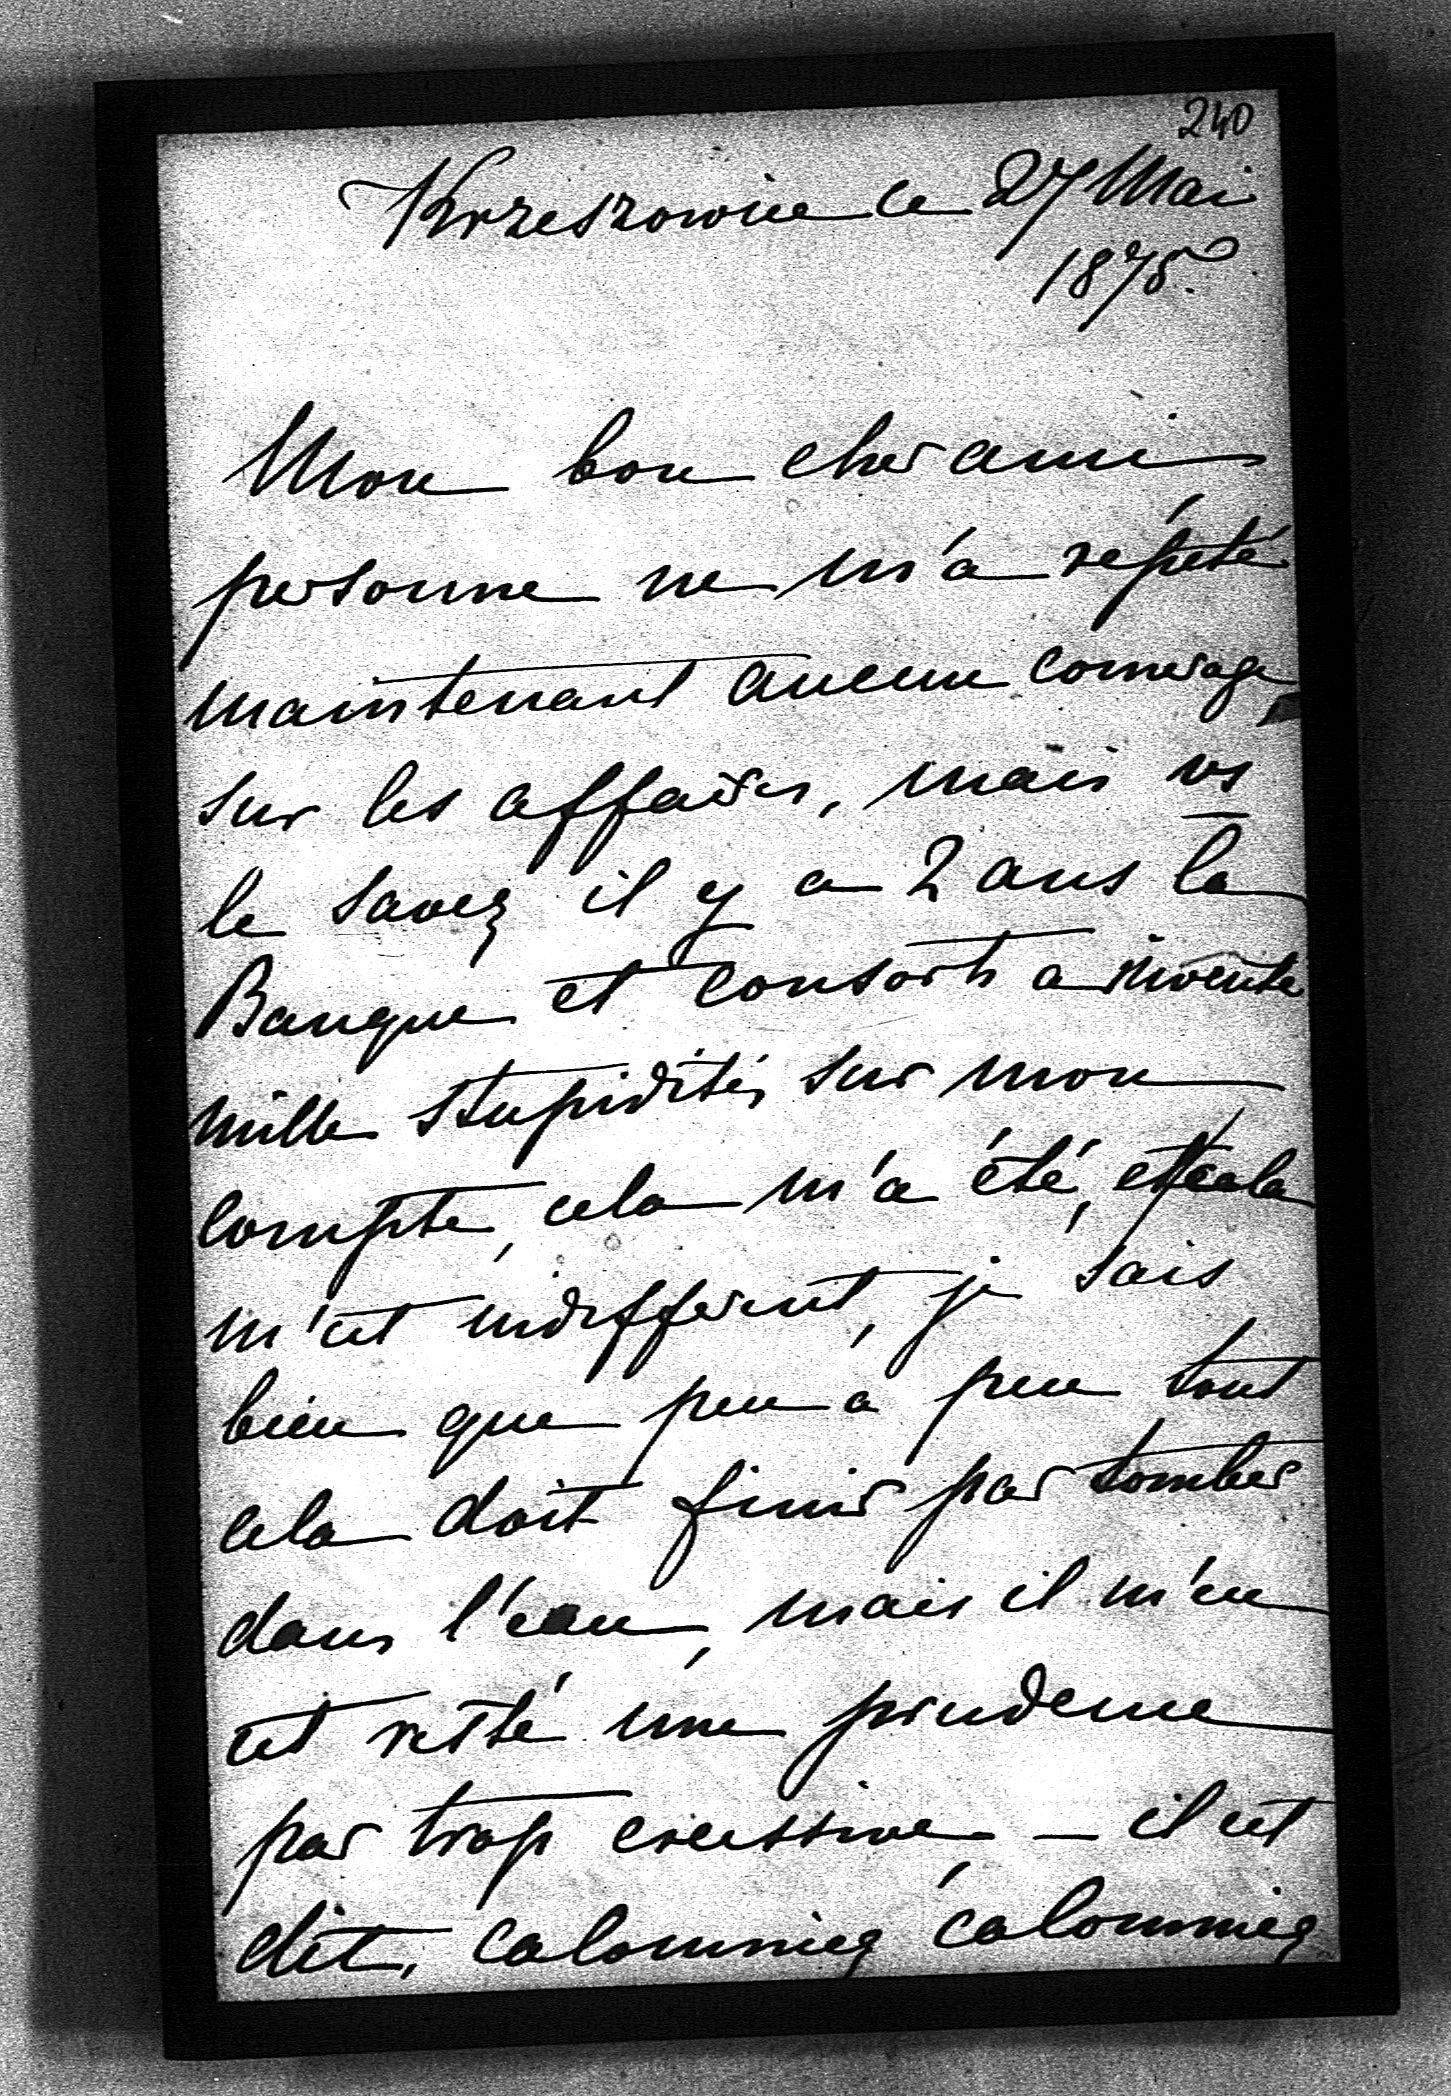 240
Krzeszowice ce 27 Mai
1875.
Mon bon cher ami
personne ne m'a répété
maintenant aucun comerage
sur les affaires, mais vs
le savez il y a 2 ans la
Banque et consorts a inventé
mille stupidités sur mon
compte, cela m'a été, et cela
m'est indifférent, je sais
bien que peu à peu tout
cela doit finir par tomber
dans l'eau, mais il m'en
est resté une prudence
par trop excessive — il est
dit, calomniez calomniez